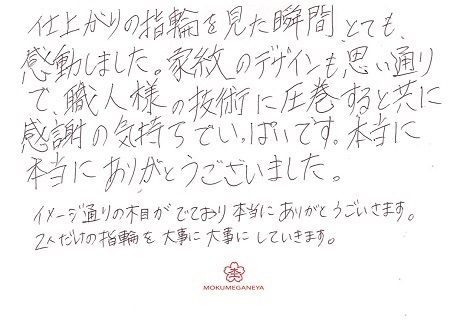 仕上がりの指輪を見た瞬間、とても、
感動しました。家紋のデザインも思い通り
で、職人様の技術に圧巻すると共に
感謝の気持ちでいっぱいです。本当に
本当にありがとうございました。
イメージ通りの木目がでており本当にありがとうございます。
2人だけの指輪を大事に大事にしていきます。
MOKUMEGANEYA